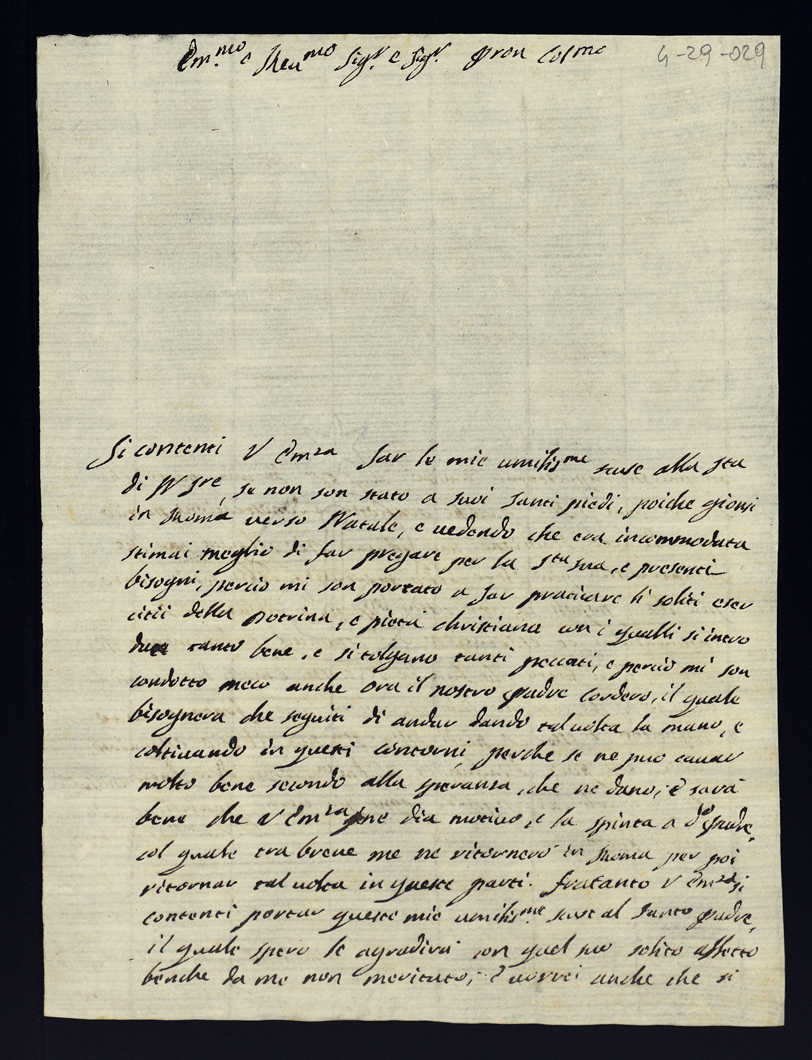 Em.mo e Reu.mo Sig.r e Sig.r Pron Colmo
4-29-029
Si contenti V Em.za far le mie umiliss.me scuse alla Sta
di N Sre, se non son stato a suoi santi piedi, poiche gionsi
in Roma verso Natale, e uedendo che era incommodata
stimai meglio di far pregare per la Sta sua, e presenti
bisogni, percio mi son portato a far praticare li soliti eser
citii della Dotrina, e pietà christiana con i qualli si intro
duce tanto bene, e si tolgano tanti peccati, e percio mi son
condotto meco anche ora il nostro Padre Cordero, il quale
bisognera che seguiti di andar dando tal uolta la mano, e
coltiuando in questi contorni, perche se ne puo cauar
molto bene secondo alla speranza, che ne dano, e sarà
bene che V Em.za ne dia motiuo, e la spinta a do Padre,
col quale tra breue me ne ritornerò in Roma per poi
ritornar tal uolta in queste parti. fratanto V Em.za si
contenti portar queste mie umiliss.me scuse al Santo Padre,
il quale spero le agradirà con quel suo solito affetto
benche da me non meritato, e uorrei anche che si